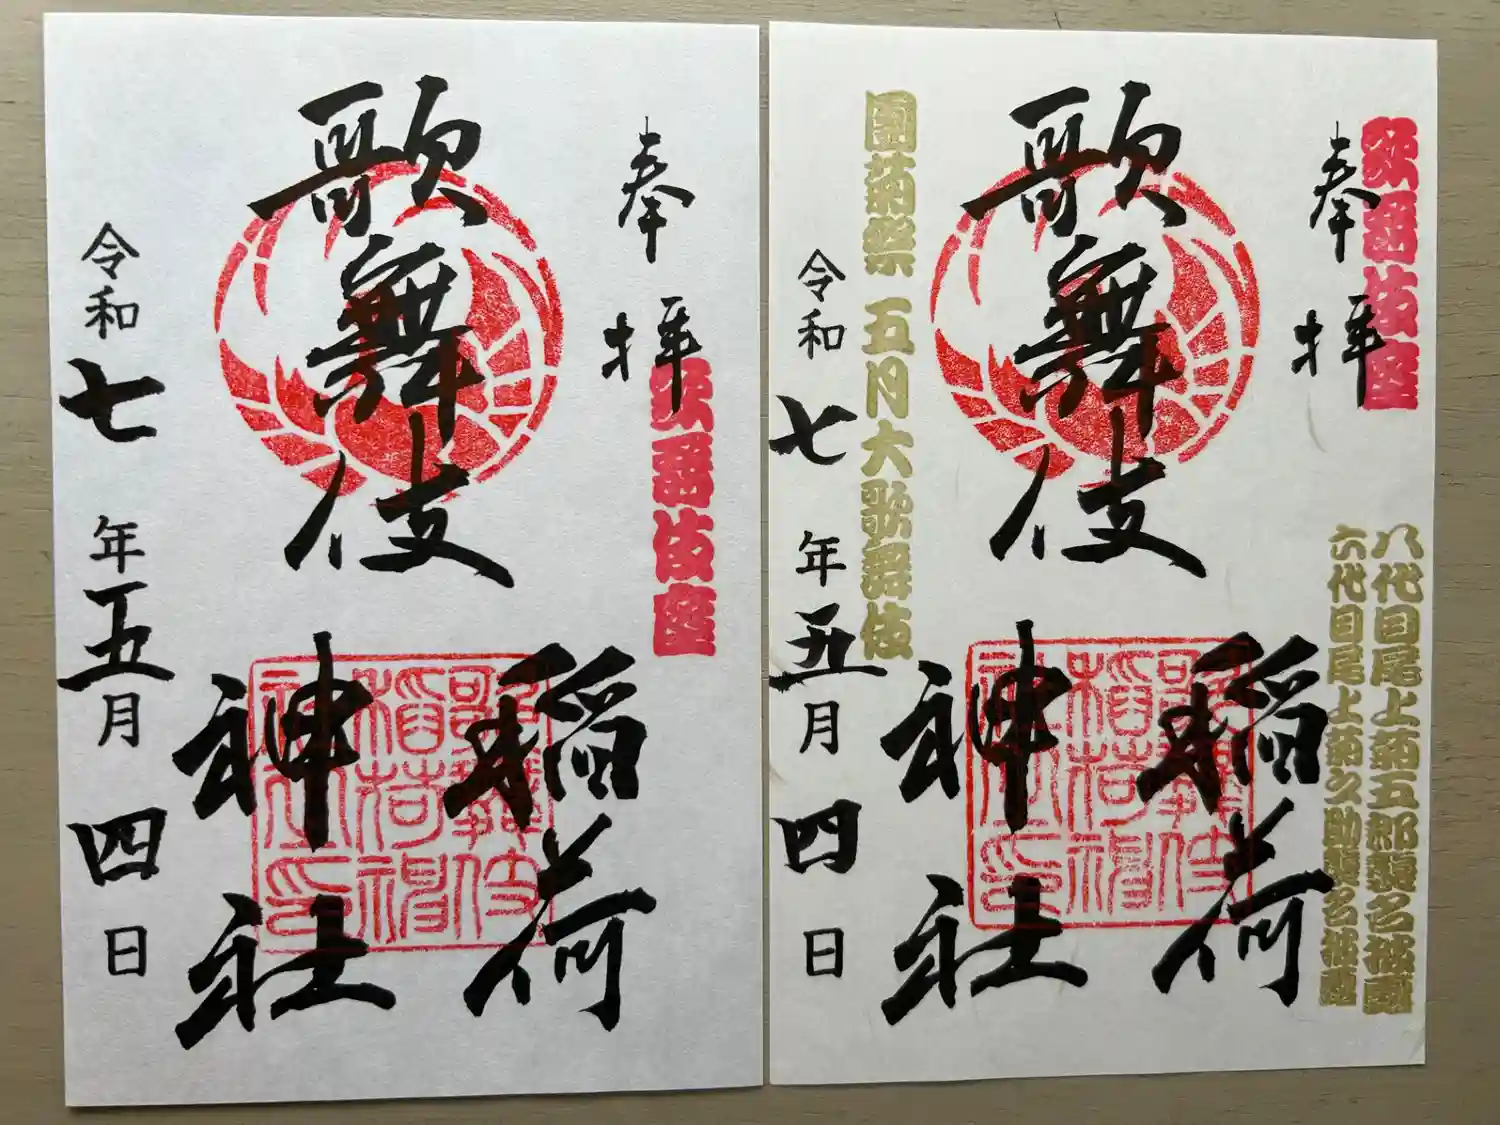 奉拝
歌舞伎座
歌舞伎
稲荷
神社
歌舞伎
稲荷神
社之印
令和七年五月四日
歌舞伎座
奉拝
八代目尾上菊五郎襲名披露
六代目尾上菊之助襲名披露
歌舞伎
稲荷
神社
歌舞伎
稲荷神
社之印
團菊祭 五月大歌舞伎
令和七年五月四日